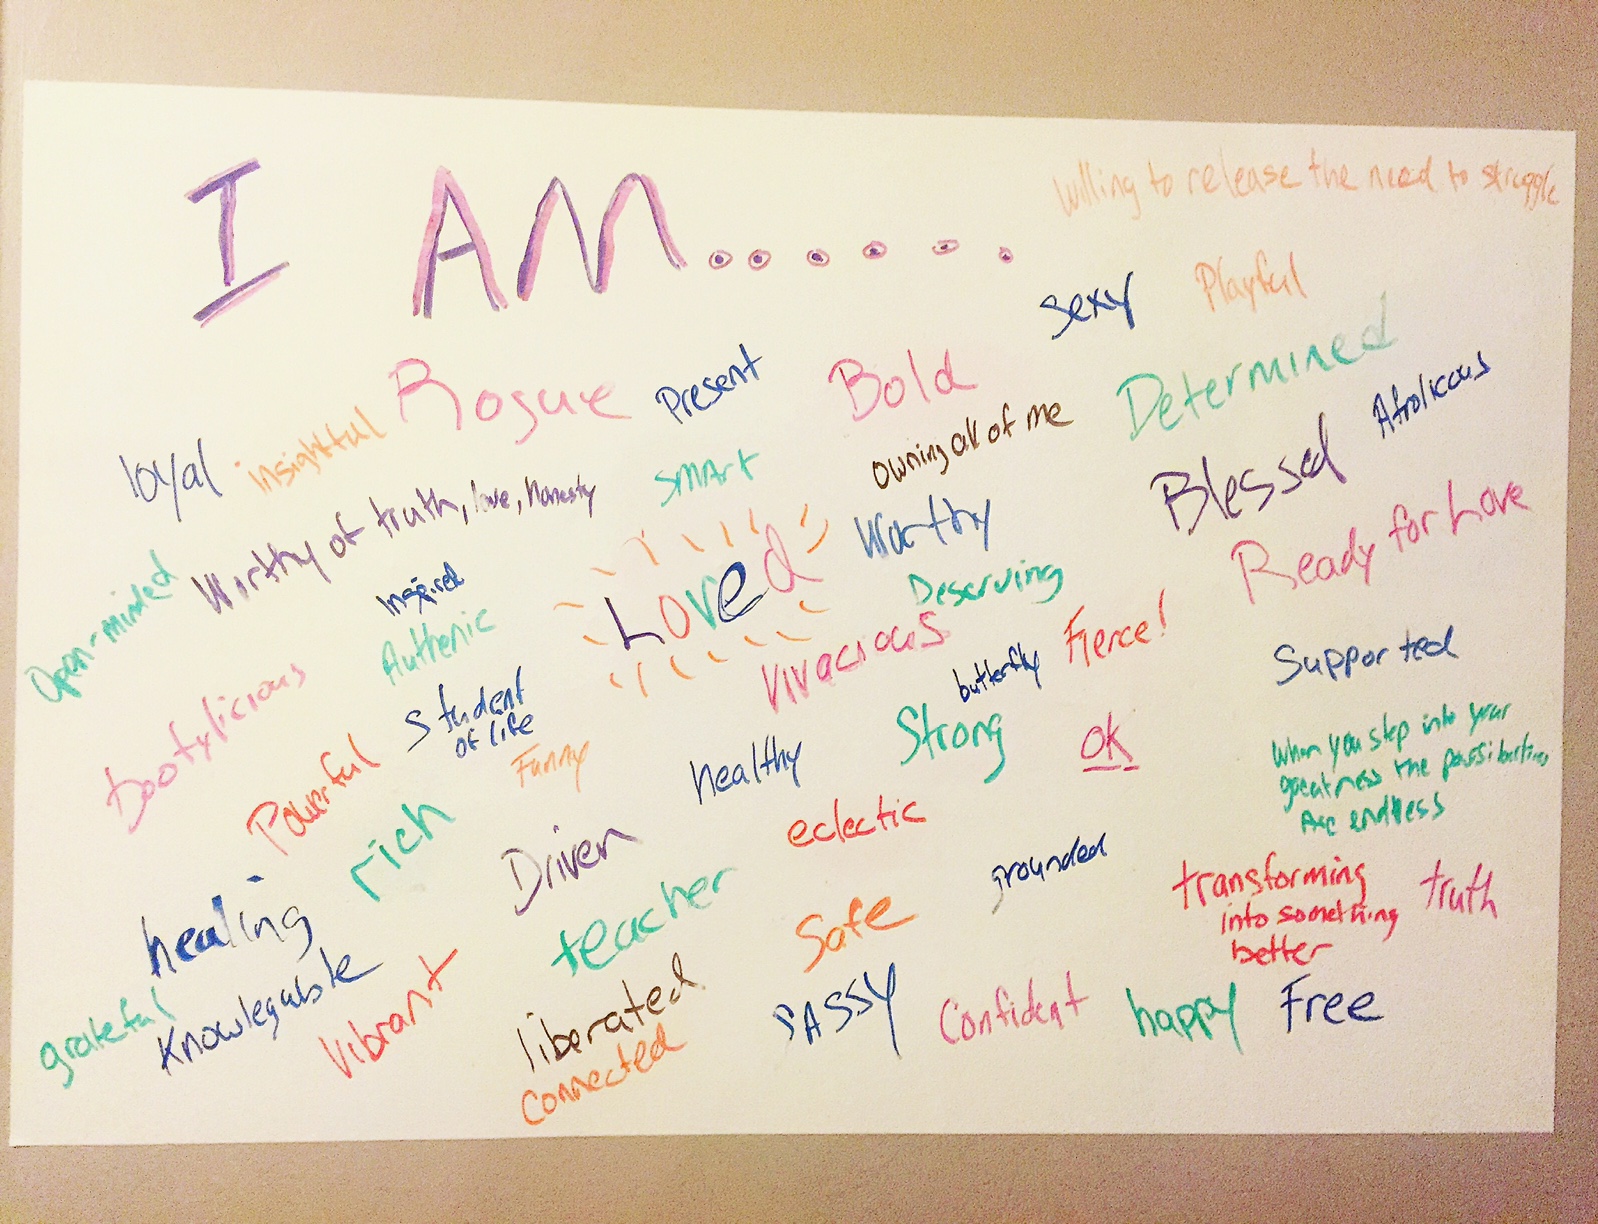 I AM......
willing to release the need to struggle
sexy
Playful
Rogue
Present
Bold
Determined
Afrolicous
loyal
insightful
smart
owning all of me
Blessed
Worthy of truth, love, honesty
Loved
Worthy
Ready for Love
Open-minded
Inspired
Authenic
Deserving
Vivacious
butterfly
Fierce!
Supported
bootylicious
Student
of life
Funny
healthy
Strong
OK
When you step into your
greatness the possibilities
Are endless
Powerful
rich
Driven
eclectic
grounded
transforming
into something
better
truth
healing
teacher
Safe
grateful
Knowlegable
Vibrant
liberated
connected
SASSY
Confident
happy
Free